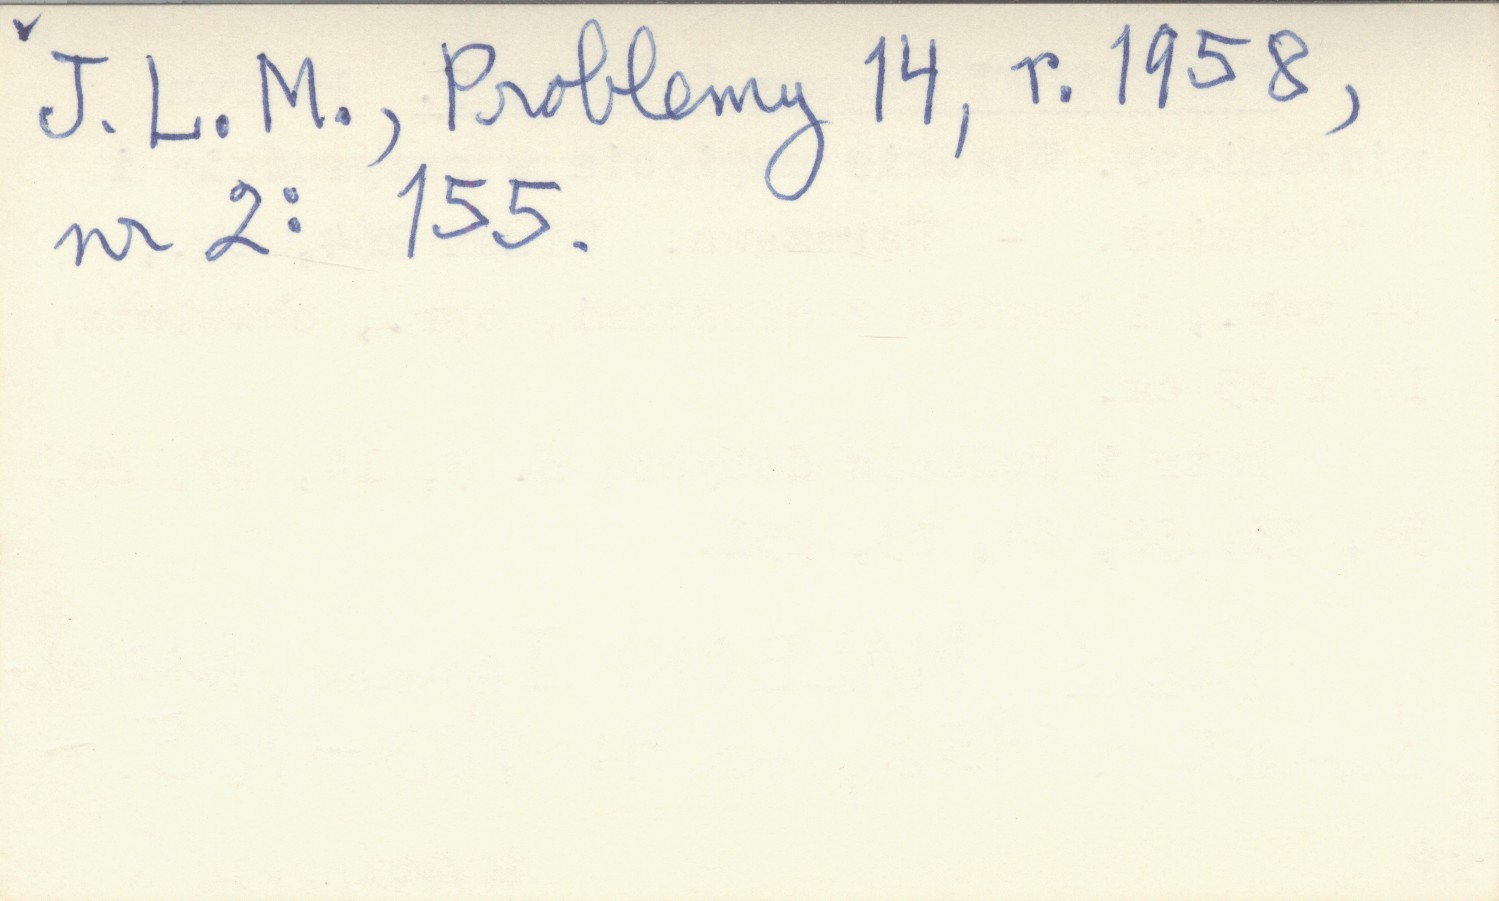 J. L. M., Problemy 14, r. 1958,
nr 2: 155.